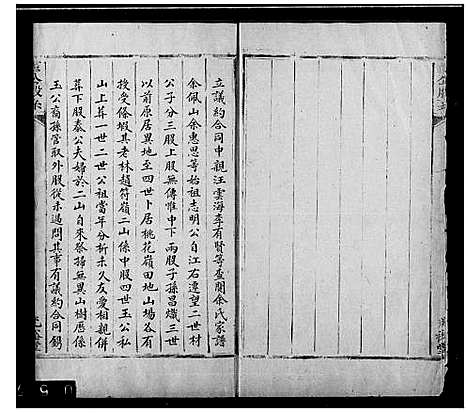 立議約合同中親汪雲海李有賢等查閱余氏家譜
余佩山余惠思等始祖志明公自江右遷望二世村
公子分三股上股無傳惟中下兩股子孫昌熾三世
以前原居異地至四世卜居桃花嶺田地山場各有
授受條墳其老林趙符嶺二山係中股四世玉公私
山上葬一世二世公祖當年分析未久友愛相親併
葬下股泰公夫婦於二山自來祭掃無異山樹應係
玉公裔孫管取外股從未過問其事有議約合同鐫